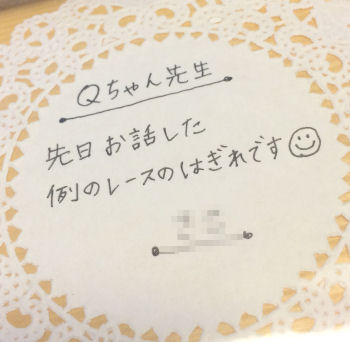 Qちゃん先生
先日お話した
例のレースのはぎれです☺